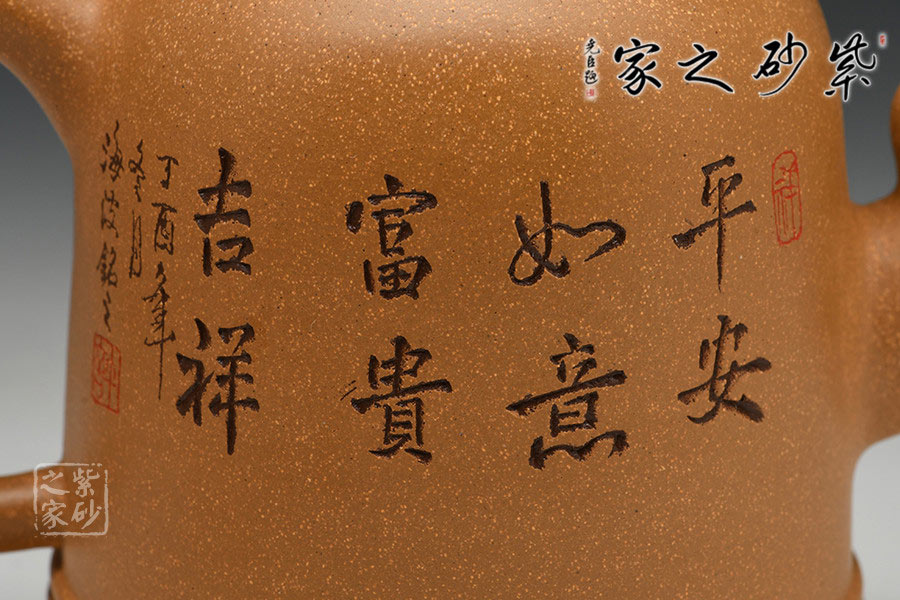 紫砂之家
平安
如意
富貴
吉祥
丁酉年
冬月
海文銘之
紫砂之家